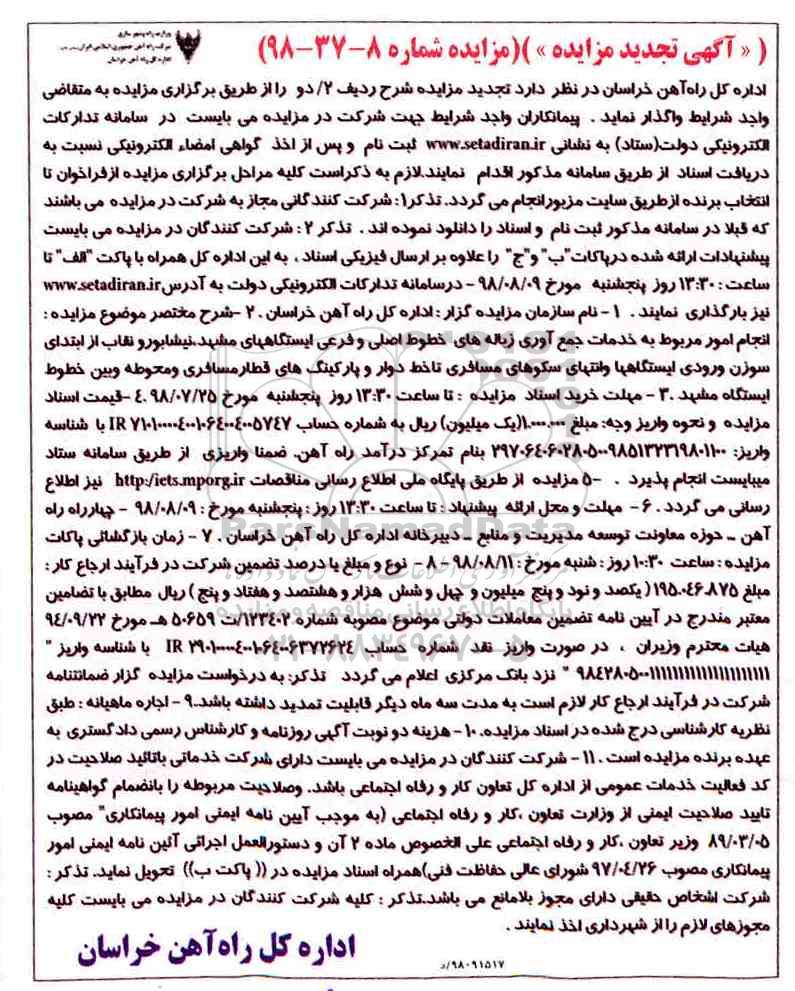 وزارت راه و شهرسازی
شرکت راه آهن جمهوری اسلامی ایران
اداره کل راه آهن خراسان
( « آگهی تجدید مزایده » )(مزایده شماره ۸-۳۷-۹۸)
اداره کل راه‌آهن خراسان در نظر دارد تجدید مزایده شرح ردیف ۲/ دو را از طریق برگزاری مزایده به متقاضی
واجد شرایط واگذار نماید . پیمانکاران واجد شرایط جهت شرکت در مزایده می بایست در سامانه تدارکات
الکترونیکی دولت(ستاد) به نشانی www.setadiran.ir ثبت نام و پس از اخذ گواهی امضاء الکترونیکی نسبت به
دریافت اسناد از طریق سامانه مذکور اقدام نمایند.لازم به ذکراست کلیه مراحل برگزاری مزایده ازفراخوان تا
انتخاب برنده ازطریق سایت مزبورانجام می گردد. تذکر۱: شرکت کنندگانی مجاز به شرکت در مزایده می باشند
که قبلا در سامانه مذکور ثبت نام و اسناد را دانلود نموده اند . تذکر ۲ : شرکت کنندگان در مزایده می بایست
پیشنهادات ارائه شده درپاکات"ب" و"ج" را علاوه بر ارسال فیزیکی اسناد ، به این اداره کل همراه با پاکت "الف" تا
ساعت : ۱۳:۳۰ روز پنجشنبه مورخ ۹۸/۰۸/۰۹ - درسامانه تدارکات الکترونیکی دولت به آدرس www.setadiran.ir
نیز بارگذاری نمایند . ۱ - نام سازمان مزایده گزار : اداره کل راه آهن خراسان . ۲ -شرح مختصر موضوع مزایده :
انجام امور مربوط به خدمات جمع آوری زباله های خطوط اصلی و فرعی ایستگاههای مشهد،نیشابورو نقاب از ابتدای
سوزن ورودی ایستگاهها وانتهای سکوهای مسافری تاخط دوار و پارکینگ های قطارمسافری ومحوطه وبین خطوط
ایستگاه مشهد .۳ - مهلت خرید اسناد مزایده : تا ساعت ۱۳:۳۰ روز پنجشنبه مورخ ۹۸/۰۷/۲۵ .۴ -قیمت اسناد
مزایده و نحوه واریز وجه: مبلغ ۱.۰۰۰.۰۰۰(یک میلیون) ریال به شماره حساب IR ۷۱۰۱۰۰۰۰۴۰۰۱۰۶۴۰۰۴۰۰۵۷۴۷ با شناسه
واریز: ۲۹۷۰۶۴۰۶۰۲۸۰۵۰۰۹۸۵۱۳۲۳۱۹۸۰۱۱۰۰ بنام تمرکز درآمد راه آهن. ضمنا واریزی از طریق سامانه ستاد
میبایست انجام پذیرد . -۵ مزایده از طریق پایگاه ملی اطلاع رسانی مناقصات http:/iets.mporg.ir نیز اطلاع
رسانی می گردد . ۶ - مهلت و محل ارائه پیشنهاد : تا ساعت ۱۳:۳۰ روز : پنجشنبه مورخ : ۹۸/۰۸/۰۹ - چهارراه راه
آهن – حوزه معاونت توسعه مدیریت و منابع – دبیرخانه اداره کل راه آهن خراسان . ۷ - زمان بازگشائی پاکات
مزایده : ساعت ۱۰:۳۰ روز : شنبه مورخ : ۹۸/۰۸/۱۱ - ۸ - نوع و مبلغ یا درصد تضمین شرکت در فرآیند ارجاع کار :
مبلغ ۱۹۵.۰۴۶.۸۷۵ ( یکصد و نود و پنج میلیون و چهل و شش هزار و هشتصد و هفتاد و پنج ) ریال مطابق با تضامین
معتبر مندرج در آیین نامه تضمین معاملات دولتی موضوع مصوبه شماره ۱۲۳۴۰۲/ت ۵۰۶۵۹ هـ مورخ ۹۴/۰۹/۲۲
هیات محترم وزیران ، در صورت واریز نقد شماره حساب IR ۲۹۰۱۰۰۰۰۴۰۰۱۰۶۴۰۰۶۳۷۲۶۲۴ با شناسه واریز "
" نزد بانک مرکزی اعلام می گردد تذکر: به درخواست مزایده گزار ضمانتنامه
شرکت در فرآیند ارجاع کار لازم است به مدت سه ماه دیگر قابلیت تمدید داشته باشد.۹ - اجاره ماهیانه : طبق
نظریه کارشناسی درج شده در اسناد مزایده. ۱۰ - هزینه دو نوبت آگهی روزنامه و کارشناس رسمی دادگستری به
عهده برنده مزایده است . ۱۱ - شرکت کنندگان در مزایده می بایست دارای شرکت خدماتی باتائید صلاحیت در
کد فعالیت خدمات عمومی از اداره کل تعاون کار و رفاه اجتماعی باشد. وصلاحیت مربوطه را بانضمام گواهینامه
تایید صلاحیت ایمنی از وزارت تعاون ،کار و رفاه اجتماعی (به موجب آیین نامه ایمنی امور پیمانکاری" مصوب
۸۹/۰۳/۰۵ وزیر تعاون ،کار و رفاه اجتماعی علی الخصوص ماده ۲ آن و دستورالعمل اجرائی آئین نامه ایمنی امور
پیمانکاری مصوب ۹۷/۰۴/۲۶ شورای عالی حفاظت فنی)همراه اسناد مزایده در (( پاکت ب)) تحویل نماید. تذکر :
شرکت اشخاص حقیقی دارای مجوز بلامانع می باشد.تذکر : کلیه شرکت کنندگان در مزایده می بایست کلیه
مجوزهای لازم را از شهرداری اخذ نمایند .
اداره کل راه‌آهن خراسان
۹۸۰۹۱۵۱۷/د
ParsNamadData
پایگاه اطلاع رسانی مناقصه و مزایده
۰۲۱-۸۸۳۴۹۶۷۰-۵